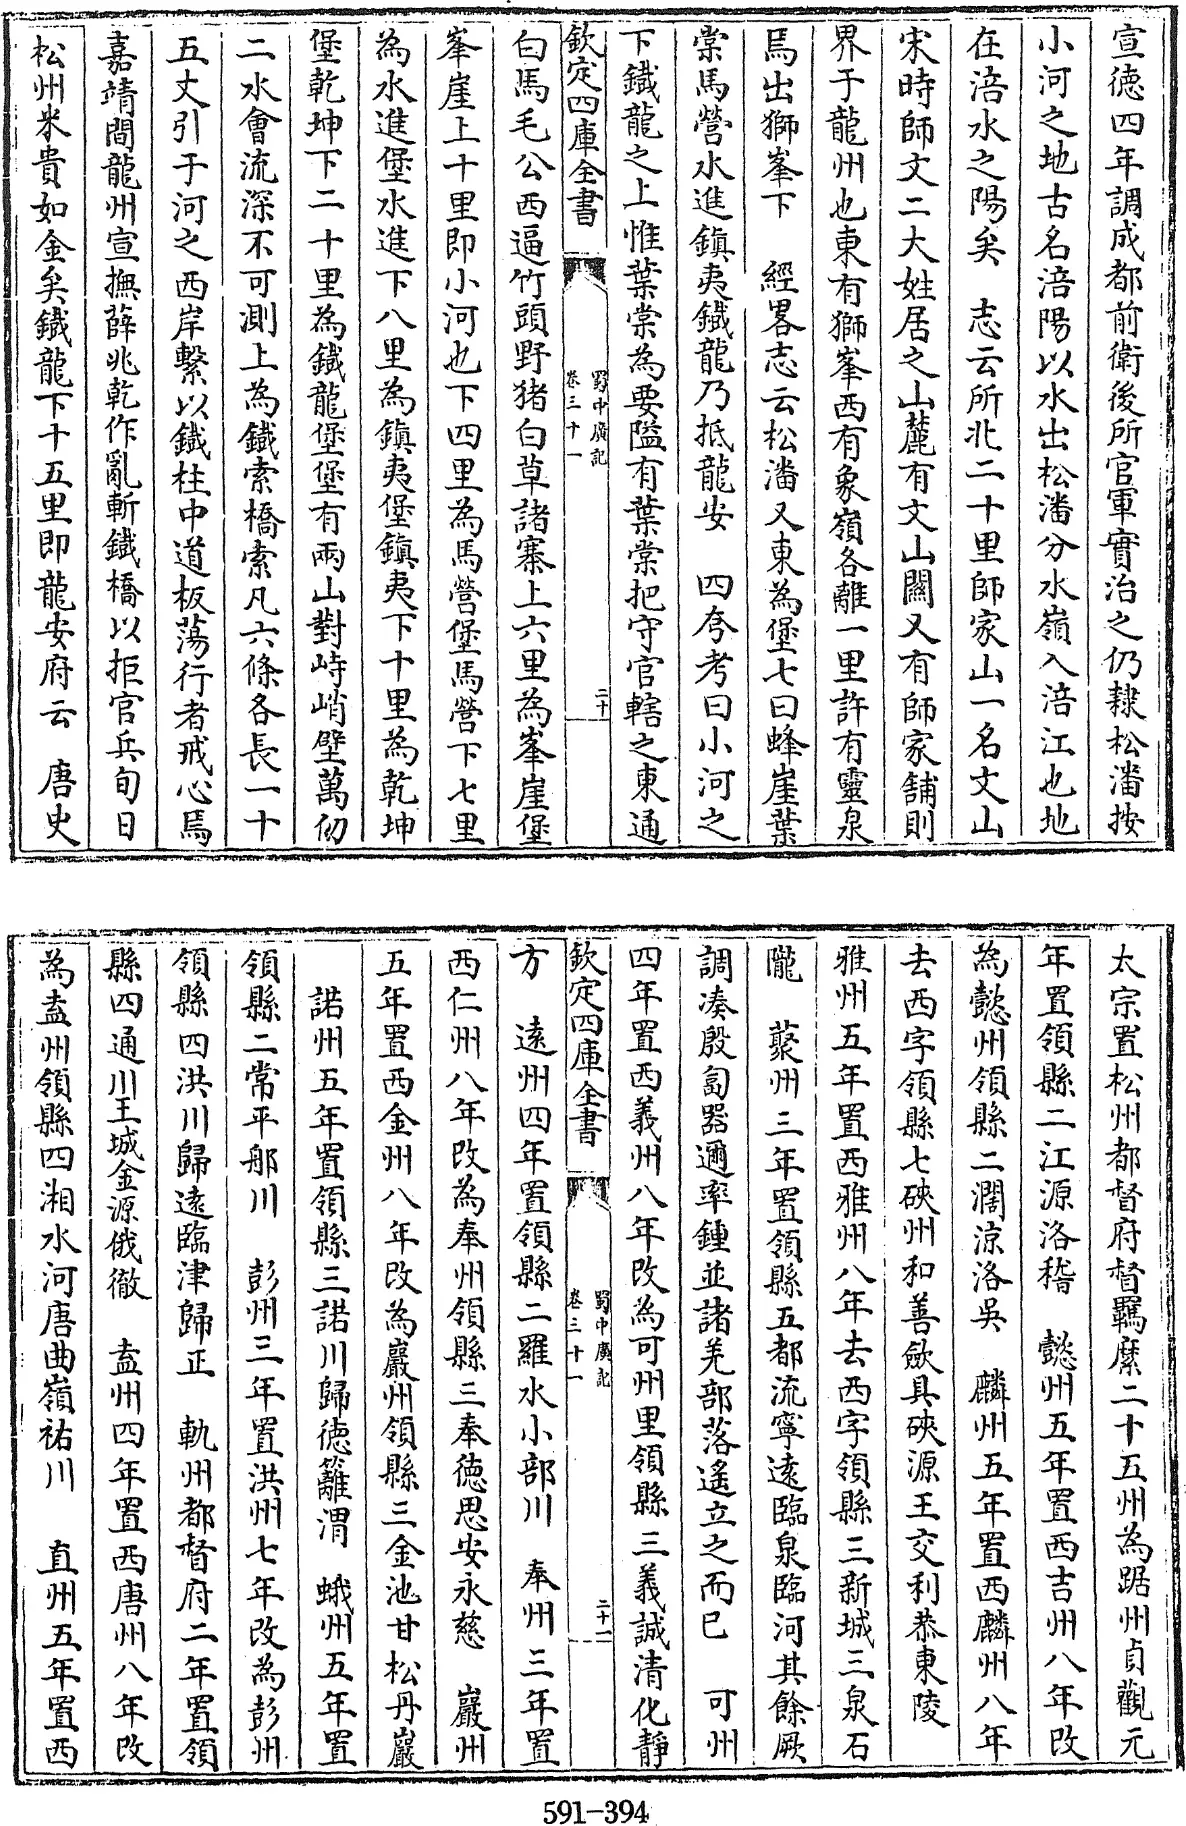 宣徳四年調成都前衛後所官軍實治之仍隸松潘按
小河之地古名涪陽以水出松潘分水嶺入涪江也地
在涪水之陽矣　志云所北二十里師家山一名文山
宋時師文二大姓居之山麓有文山關又有師家舖則
界于龍州也東有獅峯西有象嶺各離一里許有靈泉
焉出獅峯下　經畧志云松潘又東為堡七曰蜂崖葉
棠馬營水進鎮夷鐵龍乃抵龍安　四夸考曰小河之
下鐵龍之上惟葉棠為要隘有葉棠把守官轄之東通
欽定四庫全書
蜀中廣記
卷三十一
二十
白馬毛公西逼竹頭野猪白草諸寨上六里為峯崖堡
峯崖上十里即小河也下四里為馬營堡馬營下七里
為水進堡水進下八里為鎮夷堡鎮夷下十里為乾坤
堡乾坤下二十里為鐵龍堡堡有兩山對峙峭壁萬仞
二水會流深不可測上為鐵索橋索凡六條各長一十
五丈引于河之西岸繫以鐵柱中道板蕩行者戒心焉
嘉靖間龍州宣撫薛兆乾作亂斬鐵橋以拒官兵旬日
松州米貴如金矣鐵龍下十五里即龍安府云　唐史
太宗置松州都督府督羈縻二十五州為踞州貞觀元
年置領縣二江源洛稽　懿州五年置西吉州八年改
為懿州領縣二濶涼洛吳　麟州五年置西麟州八年
去西字領縣七硤州和善歛具硤源王交利恭東陵
雅州五年置西雅州八年去西字領縣三新城三泉石
隴　藂州三年置領縣五都流寧逺臨泉臨河其餘厥
調湊殷匐器邇率鍾並諸羌部落遙立之而已　可州
四年置西義州八年改為可州里領縣三義誠清化靜
欽定四庫全書
蜀中廣記
卷三十一
二十一
方　逺州四年置領縣二羅水小部川　奉州三年置
西仁州八年改為奉州領縣三奉徳思安永慈　巖州
五年置西金州八年改為巖州領縣三金池甘松丹巖
諾州五年置領縣三諾川歸徳籬渭　蛾州五年置
領縣二常平郍川　彭州三年置洪州七年改為彭州
領縣四洪川歸逺臨津歸正　軌州都督府二年置領
縣四通川王城金源俄徹　盍州四年置西唐州八年改
為盍州領縣四湘水河唐曲嶺祐川　直州五年置西
591-394